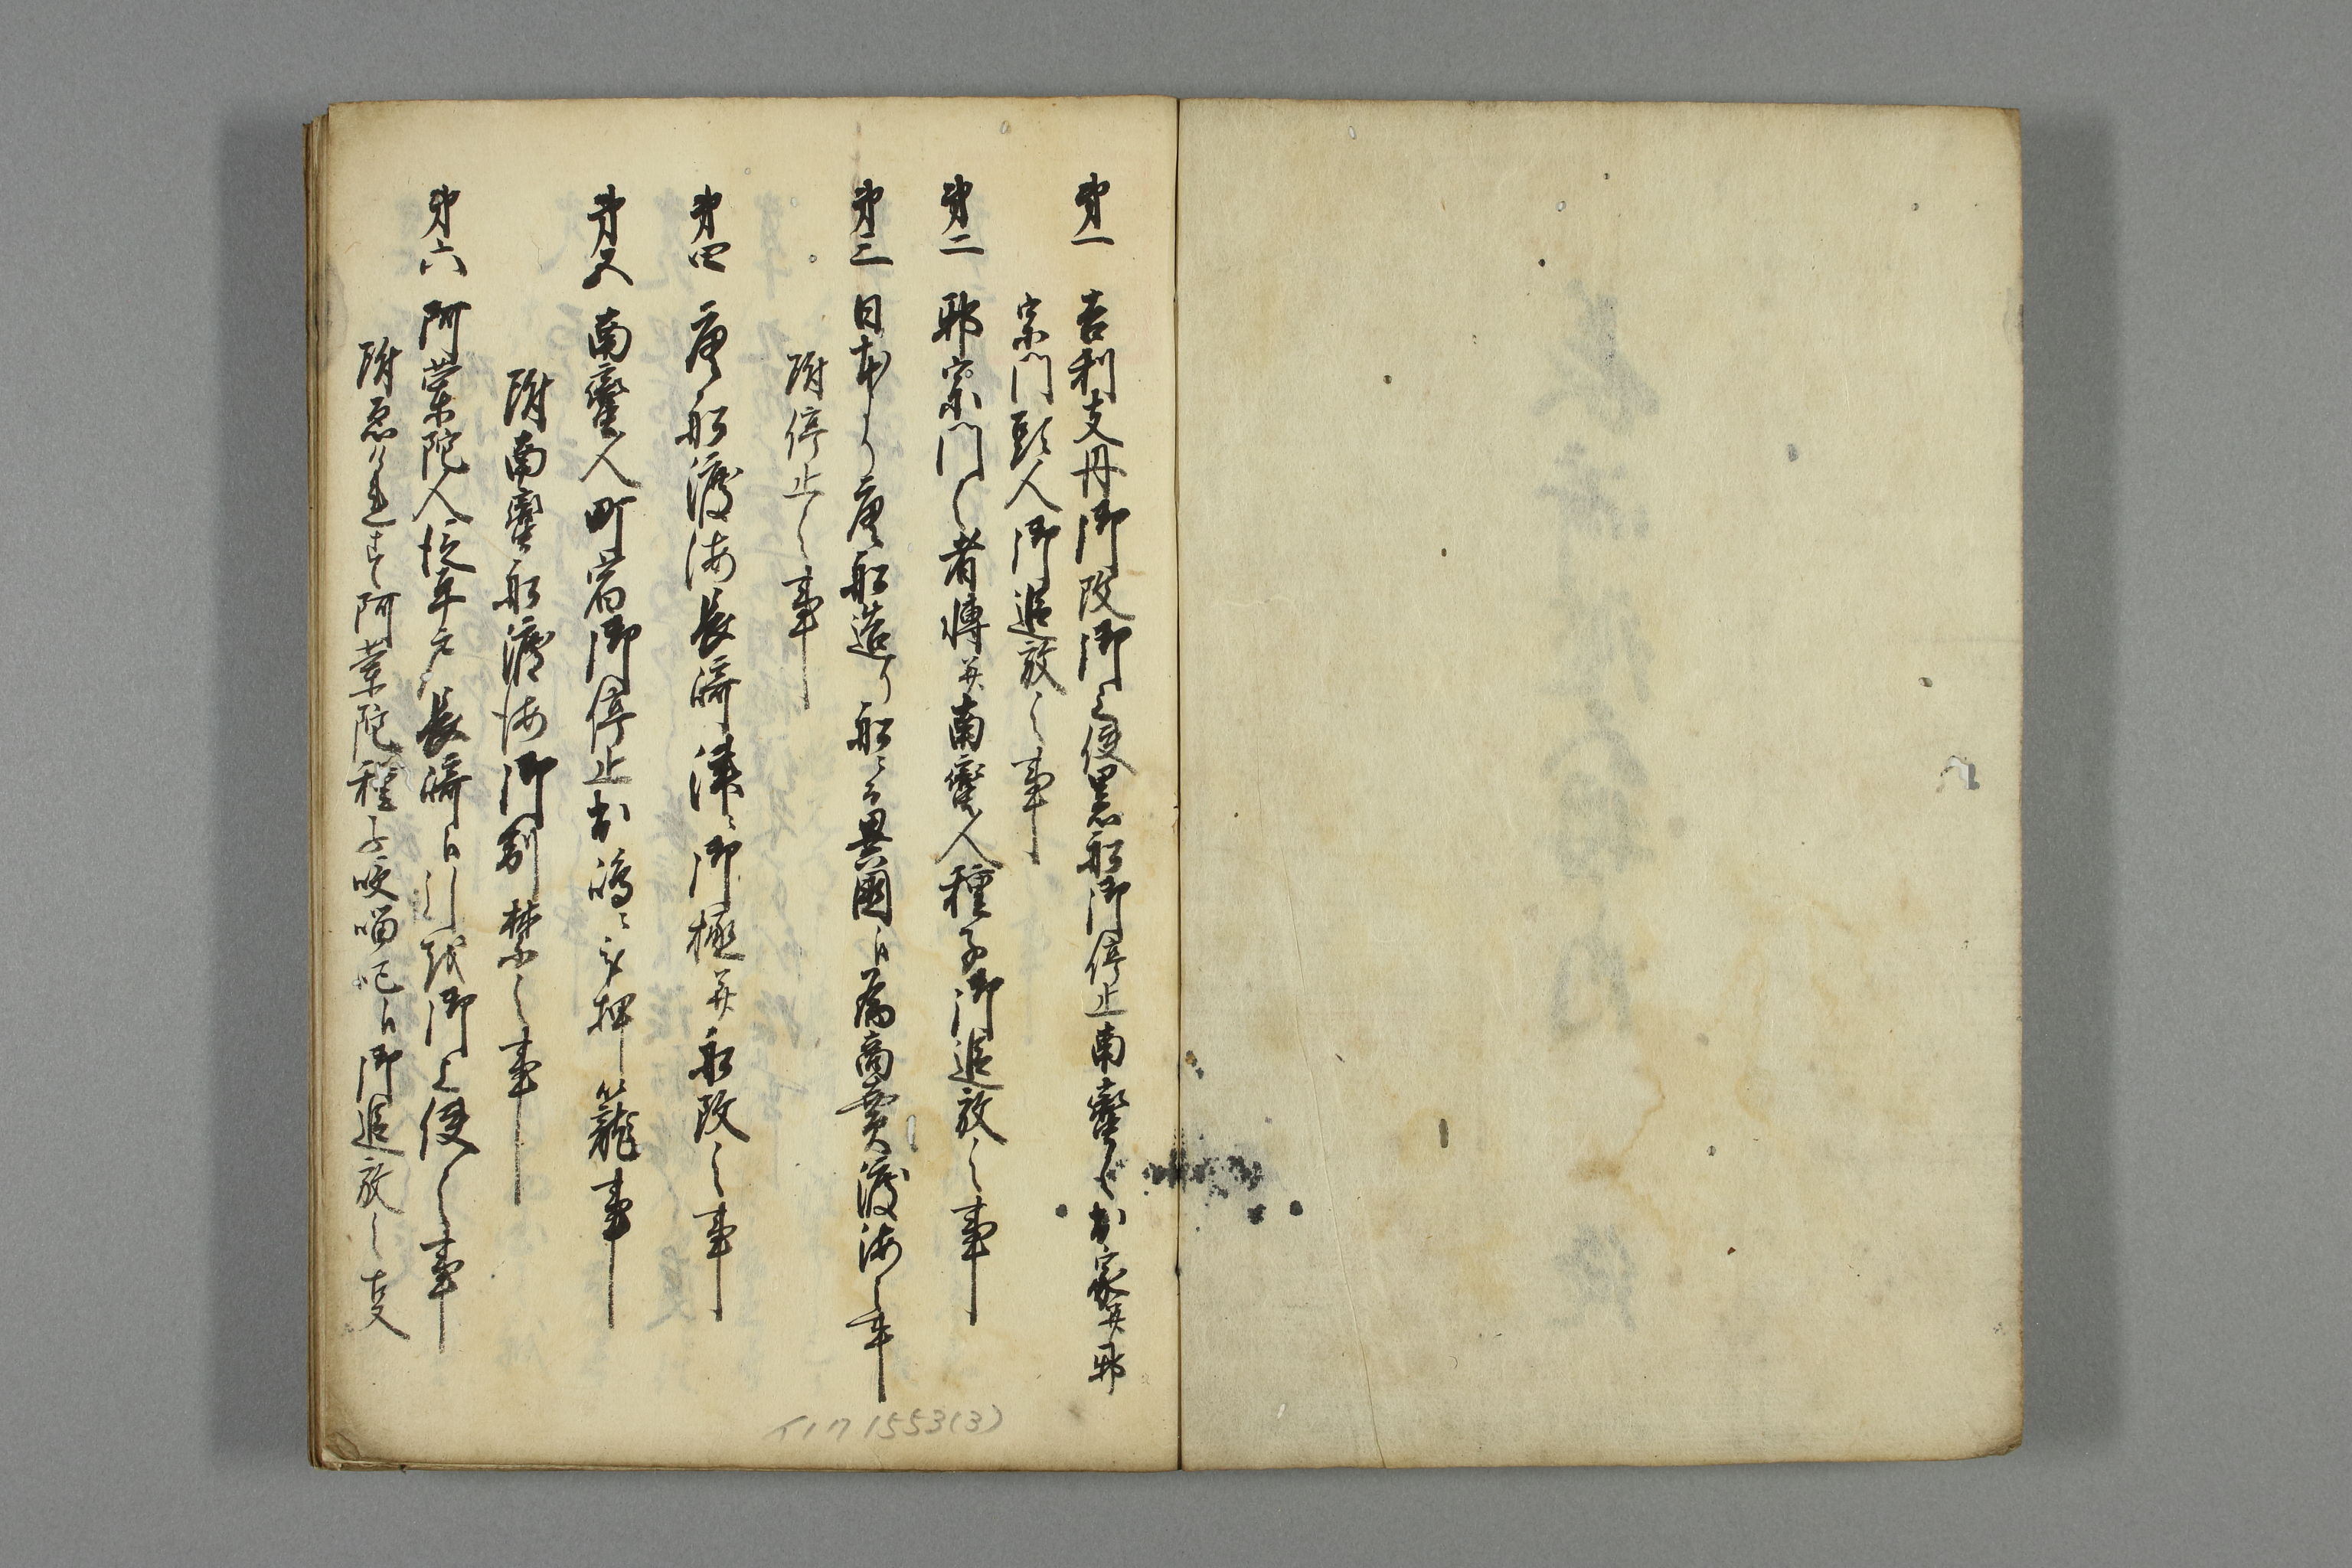 第一 吉利支丹御改御上使黒船御停止南蛮寺出家并邪
宗門頭人御追放之事
第二 邪宗門之者転并南蛮人種子御追放之事
第三 日本ゟ唐船造り船ニ而異国江為商売渡海之事
附停止之事
第四 唐船渡海長崎津ニ御極并船改之事
第五 南蛮人町宿御停止出嶋ニ被押籠事
附南蛮船渡海御制禁之事
第六 阿蘭陀人従平戸長崎江引越御上使之事
附 阿蘭陀種子咬𠺕吧江御追放之支
T17 1553(3)